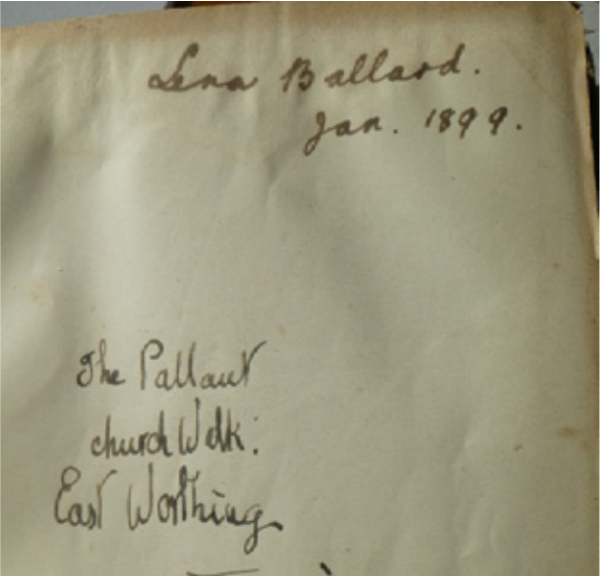 Lena Ballard.
Jan. 1899.
The Pallant
church Walk:
East Worthing